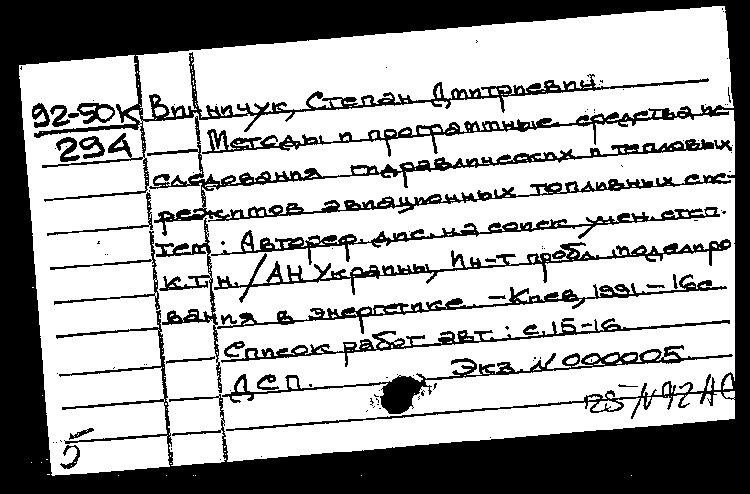 92-50К Винничук, Степан Дмитриевич.
294 Методы и программные средства ис-
следования гидравлических и тепловых
режимов авиационных топливных сис-
тем: Автореф. дис. на соиск. учен. степ.
к.т.н. / АН Украины, Ин-т пробл. моделиро
вания в энергетике. - Киев, 1991. - 16с.
Список работ авт.: с. 15-16.
ДСП. Экз. N 000005.